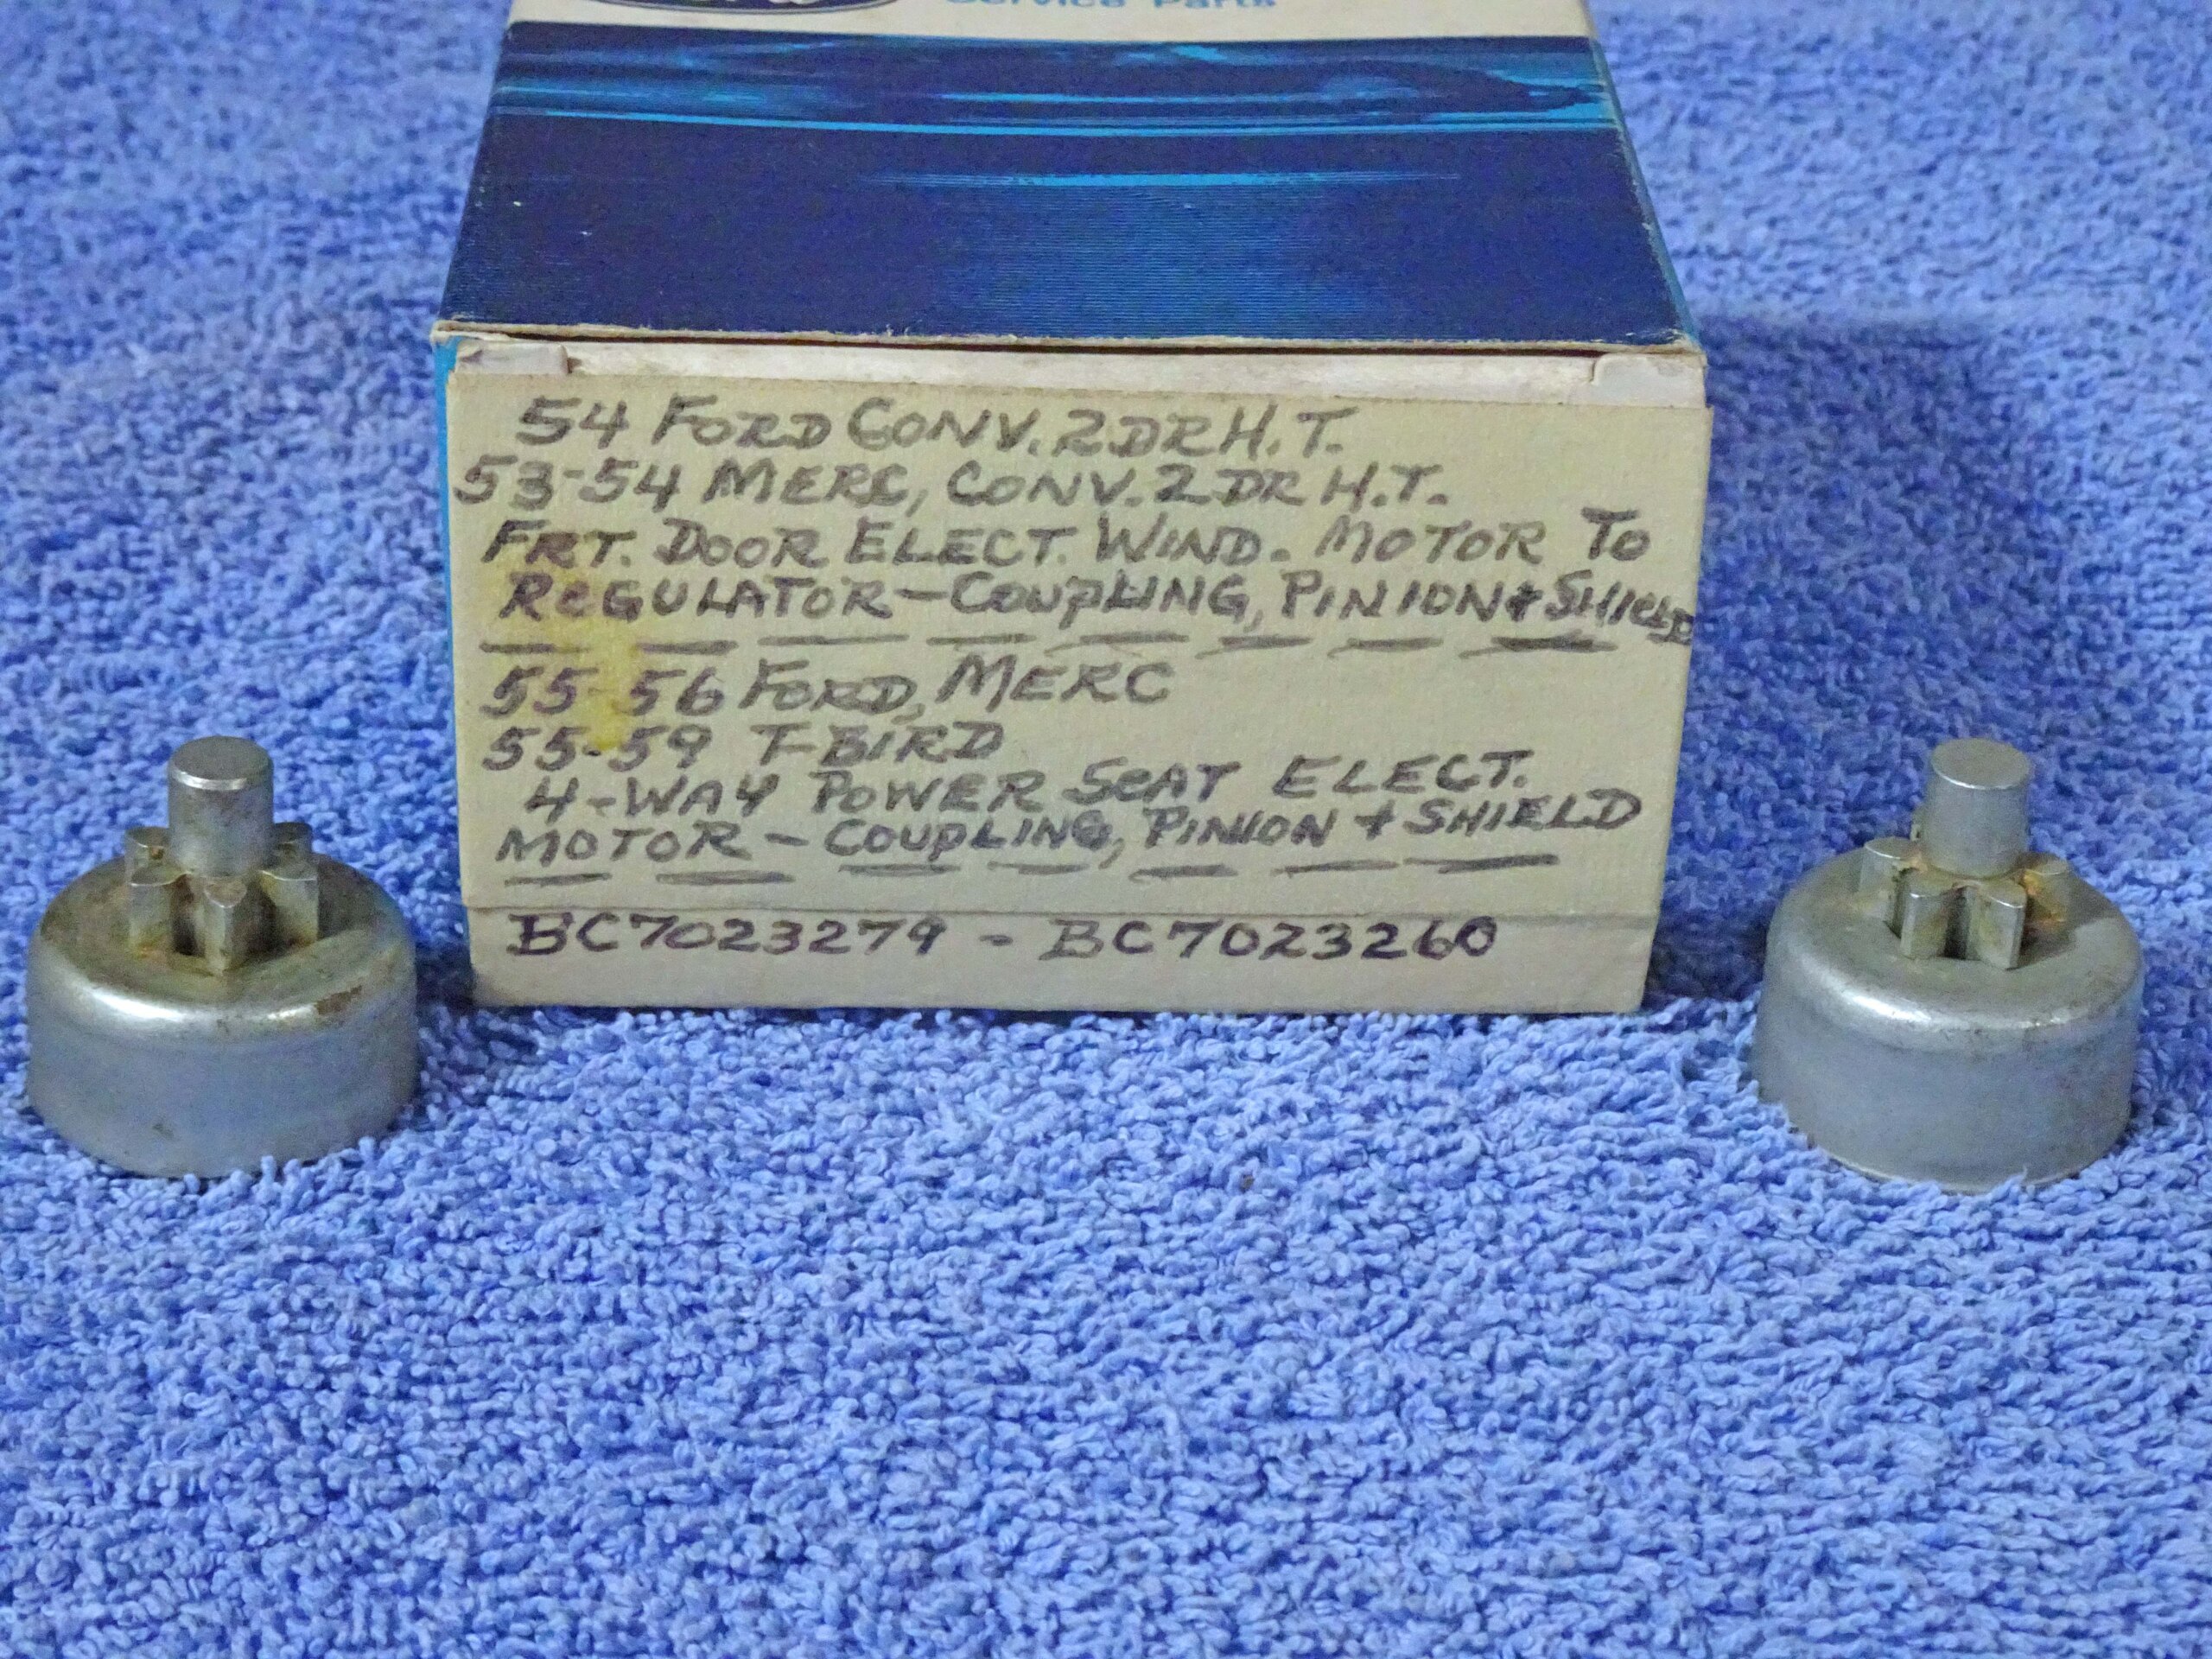 Service Parts
54 FORD CONV. 2DR H.T.
53-54 MERC, CONV. 2 DR H.T.
FRT. DOOR ELECT. WIND. MOTOR TO
ReGULATOR-COUPLING, PINION + SHIELD
55-56 FORD, MERC
55-59 T-BIRD
4-WAY POWER SeAT ELECT.
MOTOR - COUPLING, PINION + SHIELD
BC7023279 - BC7023260